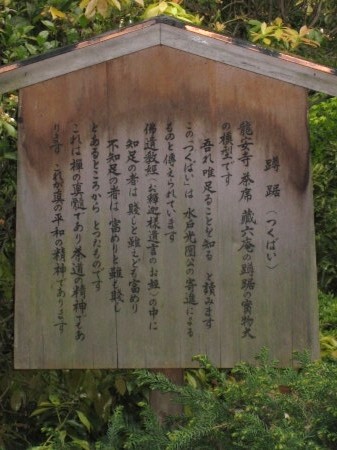 蹲踞（つくばい）
龍安寺 茶席 蔵六庵の蹲踞の實物大
の模型です
吾れ唯足ることを知る と讀みます
この「つくばい」は 水戸光圀公の寄進による
ものと傳えられています
佛遺教経（お釋迦様遺言のお経）の中に
知足の者は 賤しと雖えども富めり
不知足の者は 富めりと雖も賤し
とあるところから とつたものです
これは 禅の真髄であり 茶道の精神であ
ります これが真の平和の精神であります